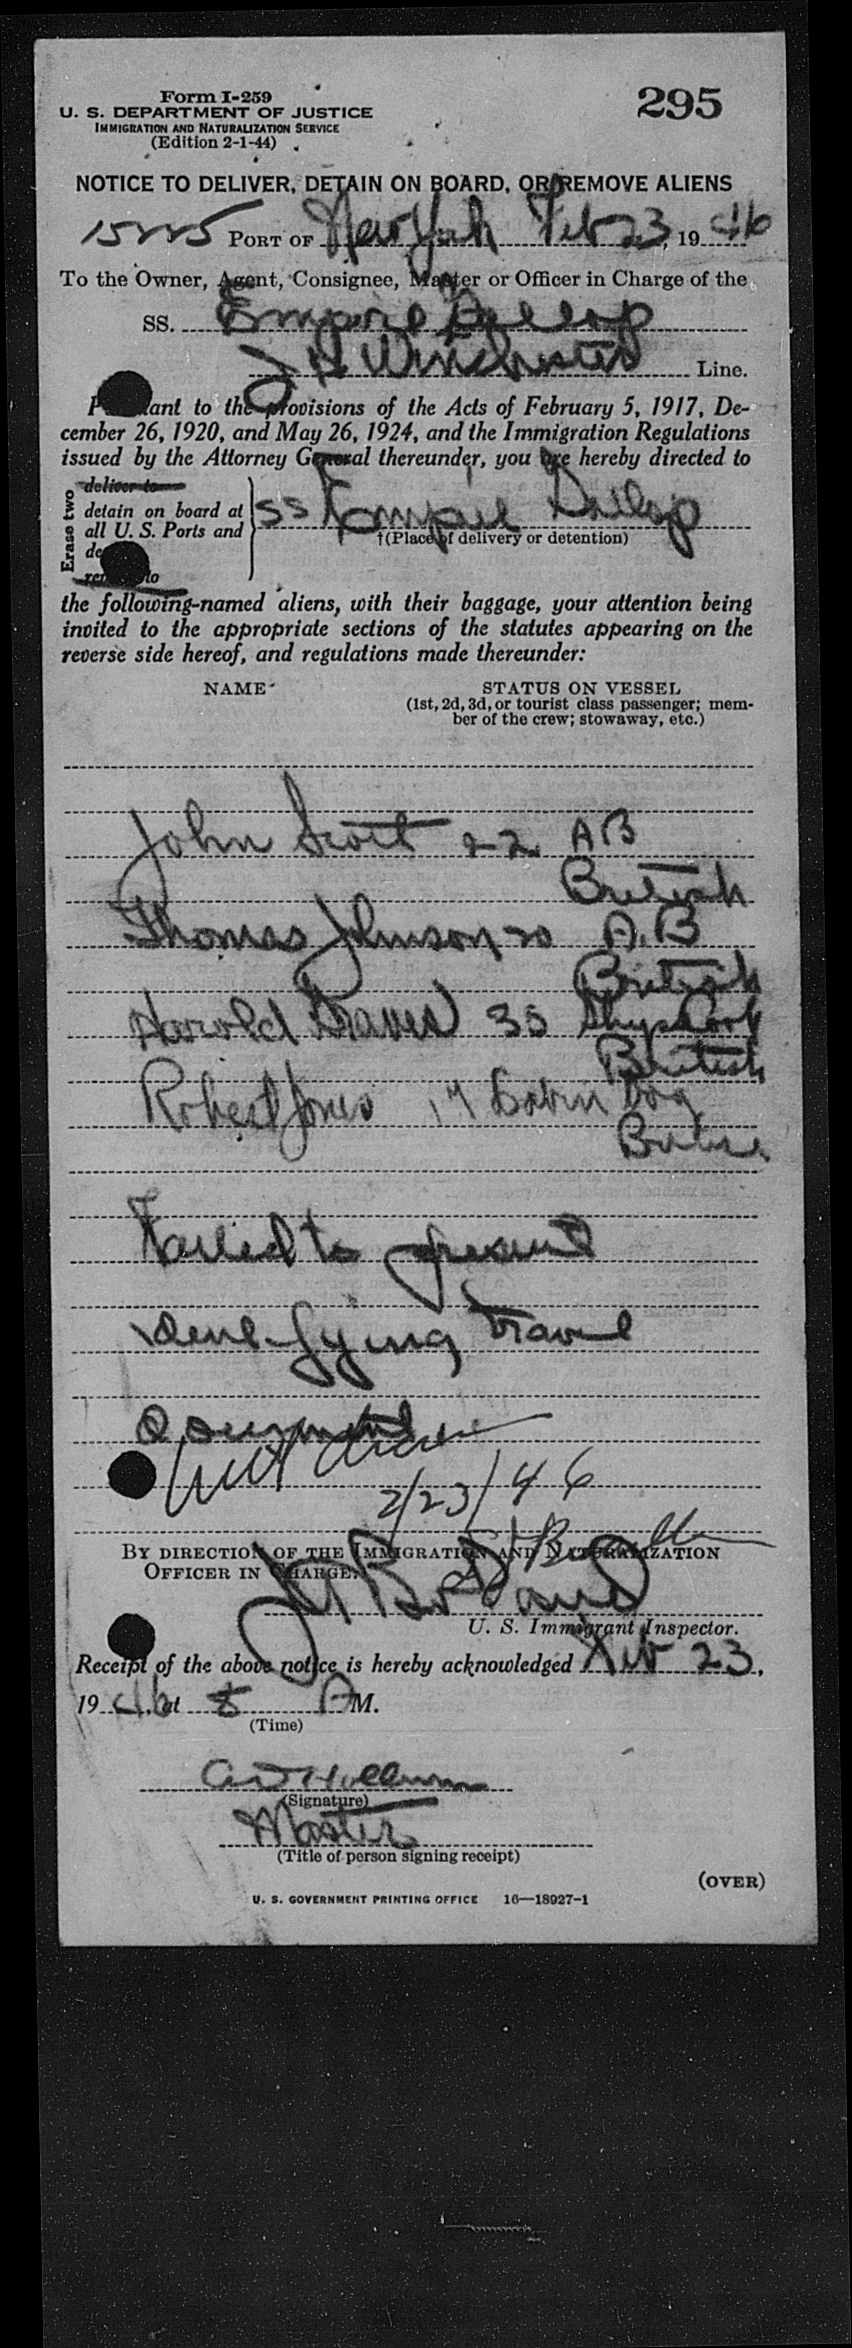 Form I-259
295
U. S. DEPARTMENT OF JUSTICE
IMMIGRATION AND NATURALIZATION SERVICE
(Edition 2-1-44)
NOTICE TO DELIVER, DETAIN ON BOARD, OR REMOVE ALIENS
PORT OF New York Feb 23, 1946
To the Owner, Agent, Consignee, Master or Officer in Charge of the
SS. Empire
J H Winchester Line.
to the provisions of the Acts of February 5, 1917, De-
cember 26, 1920, and May 26, 1924, and the Immigration Regulations
issued by the Attorney General thereunder, you are hereby directed to
Erase two
deliver to
detain on board at
all U. S. Ports and
SS Empire
†(Place of delivery or detention)
to
the following-named aliens, with their baggage, your attention being
invited to the appropriate sections of the statutes appearing on the
reverse side hereof, and regulations made thereunder:
NAME
STATUS ON VESSEL
(1st, 2d, 3d, or tourist class passenger; mem-
ber of the crew; stowaway, etc.)
John Scott 22 AB
British
Thomas Johnson 20 A.B
British
Harold 35 Ships Cook
British
Robert Jones 17 Cabin Boy
Failed to present
travel
Document
2/23/46
BY DIRECTION OF THE IMMIGRATION AND NATURALIZATION
OFFICER IN CHARGE:
U. S. Immigrant Inspector.
Receipt of the above notice is hereby acknowledged Feb 23,
1946 at 8 AM.
(Time)
(Signature)
Master
(Title of person signing receipt)
(OVER)
U. S. GOVERNMENT PRINTING OFFICE 16—18927-1